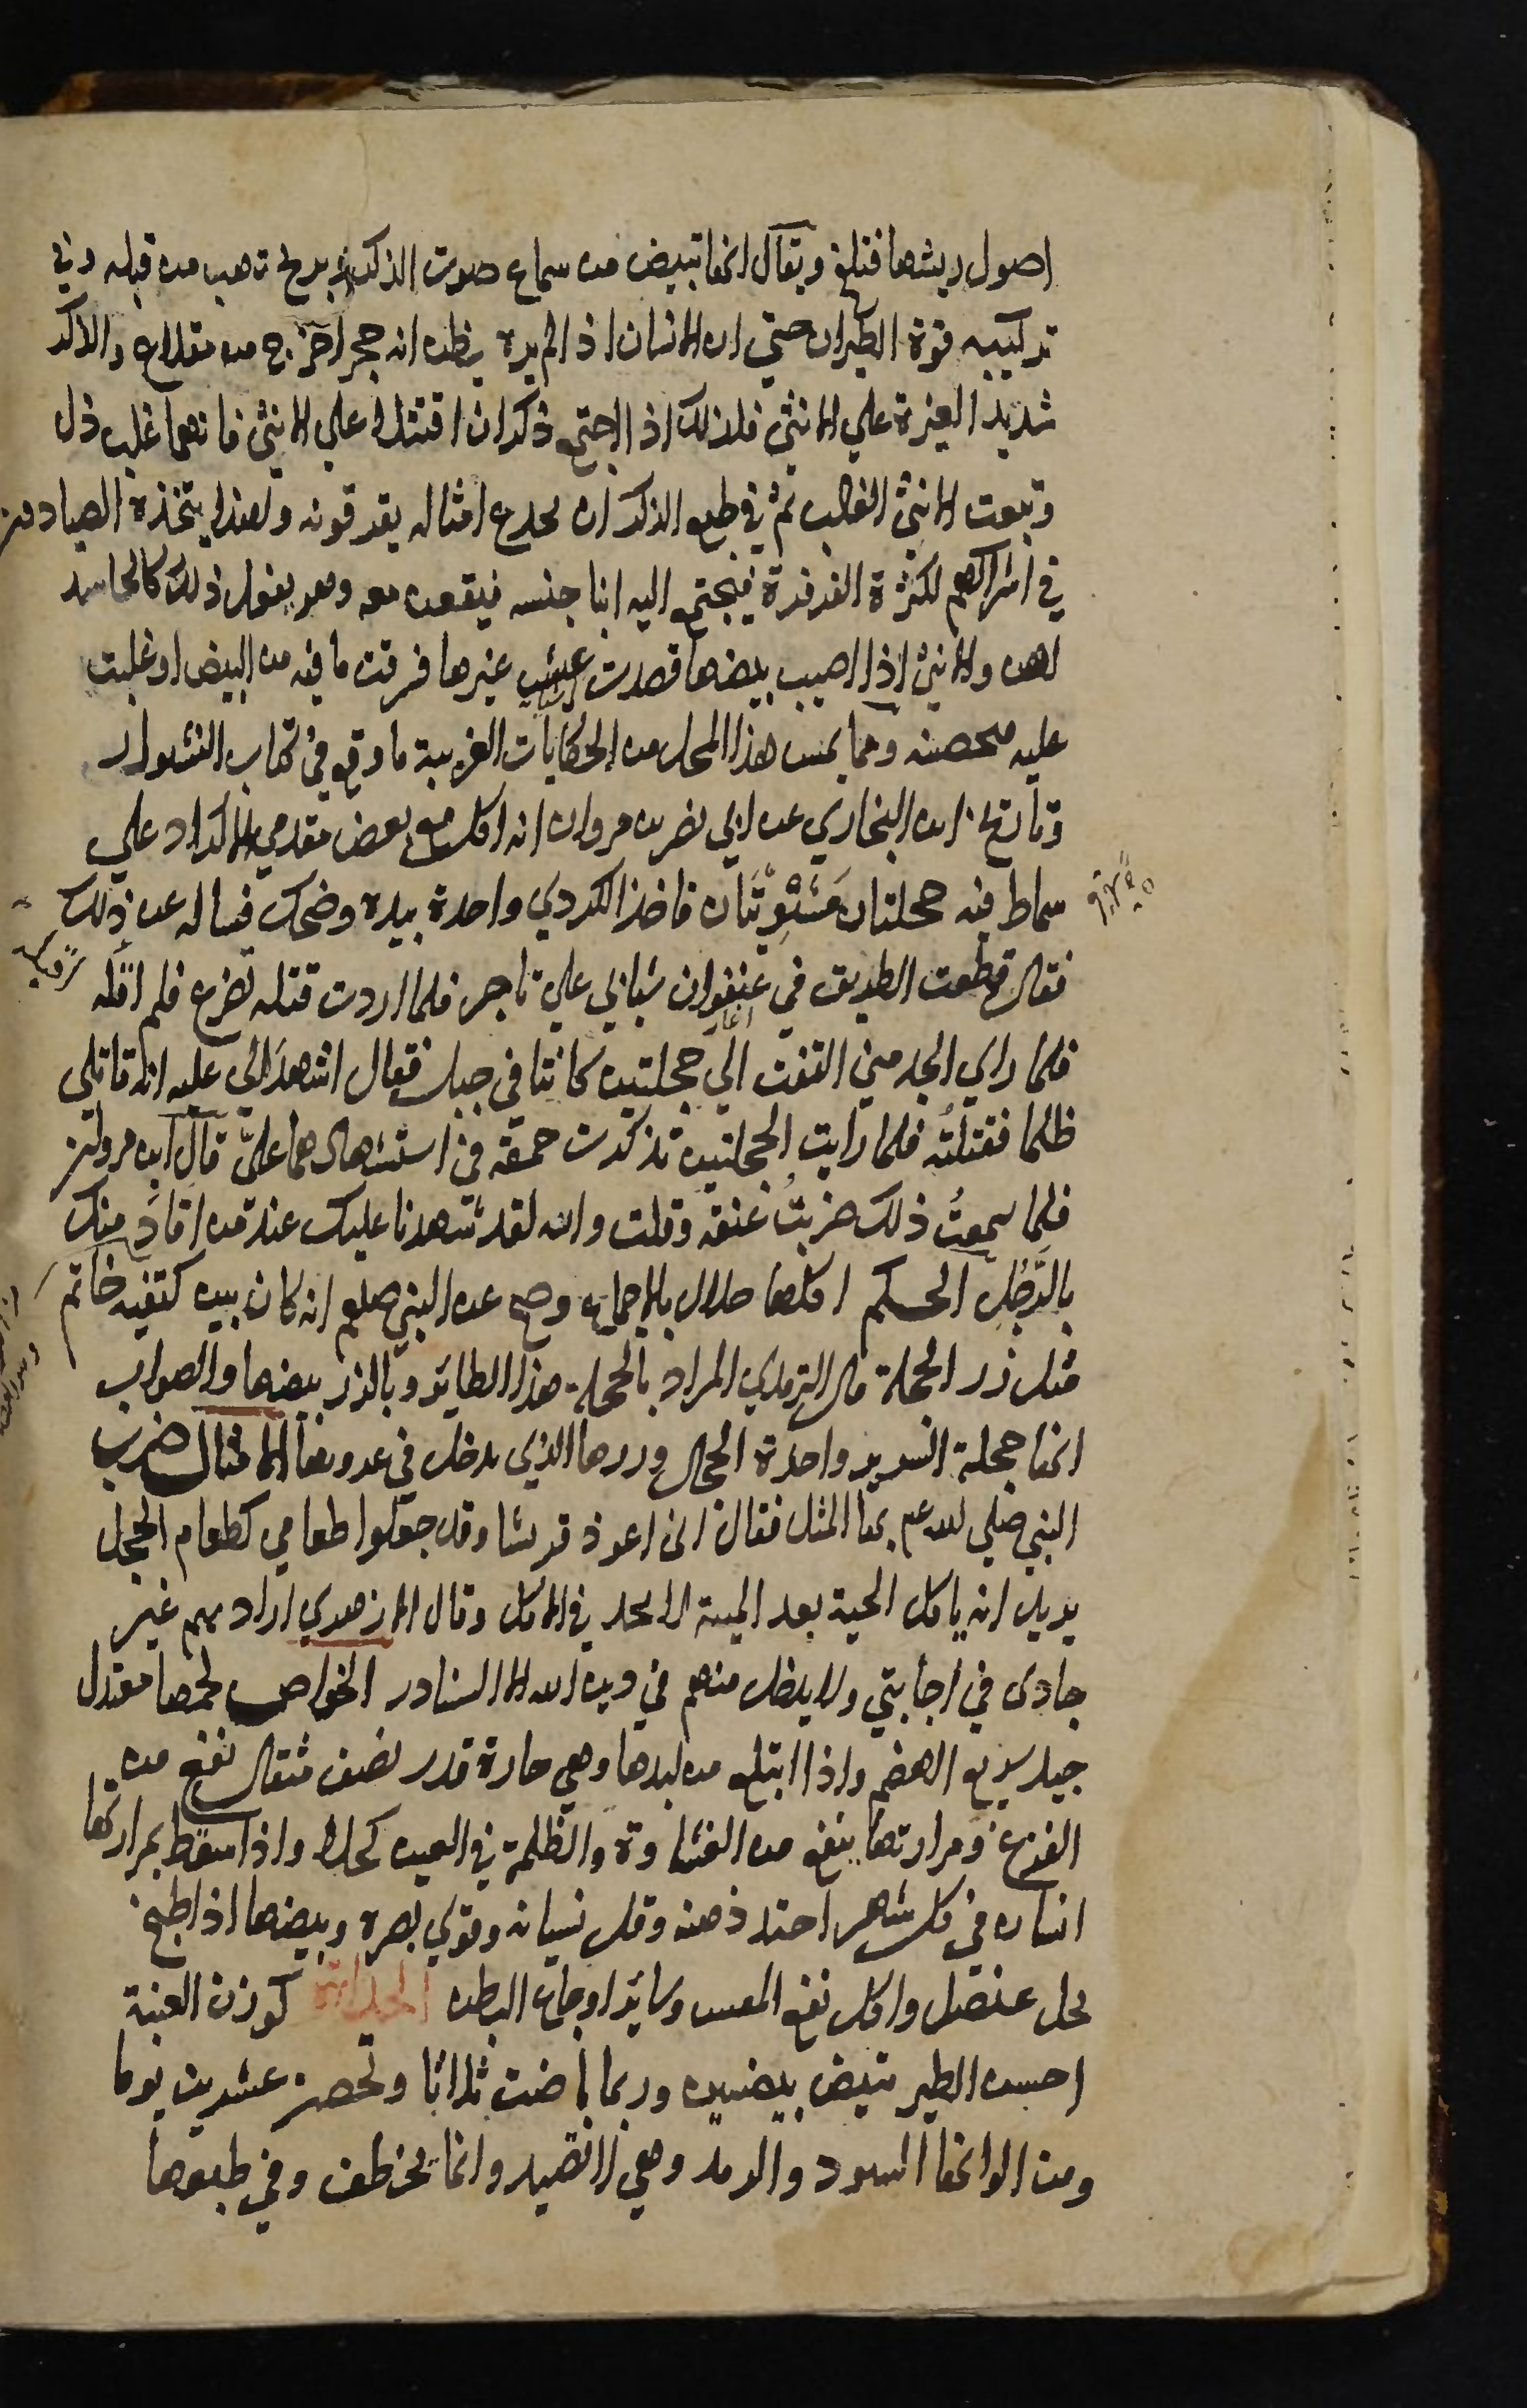 اصول ريشها فتلقح ويقال انها تبيض من سماع صوت الذكر او بريح تهب من قبله وفي
تركيبه قوة الطيران حتي ان الانسان اذا لم يره يظنه انه حجرا خرج من مقلاع والذكر
شديد الغيرة علي الانثى فلذلك اذا اجتمع ذكران اقتتلا علي الانثى فايهما غلب ذل
وتبعت الانثى الغالب ثم في طبع الذكر ان يخدع امثاله بقرقرته ولهذا يتخذه الصيادون
في اشراكهم لكثرة القرقرة فيجتمع اليه ابنا جنسه فيقعن معه وهو يفعل ذلك كالحاسد
لهن والانثى اذا اصيب بيضها قصدت عش غيرها فرقت ما فيه من البيض او غلبت
عليه محضنه ومما يحسن هذا المحل من الحكايات الغريبة ما وقع في كتاب النشوار
وتاريخ ابن البخاري عن ابي نصر بن مروان انه اكل مع بعض مقدمي الاكراد علي
سماط فيه حجلتان مَشْوِيَّتَان فاخذ الكردي واحدة بيده وضحك فساله عن ذلك
فقال قطعت الطريق في عنفوان شبابي علي تاجر فلما اردت قتله تضرع فلم اقله
فلما راي الجد مني التفت الي حجلتين كانتا في جبل فقال اشهدا لي عليه انه قاتلي
ظلما فقتلتُه فلما رايت الحجلتين تذكرت حمقه في استشهادهما عليّ قال ابن مروان
فلما سمعتُ ذلك ضربتُ عنقه وقلت والله لقد شهدتا عليك عند من اقادَ منك
بالرَّجُل الحكم اكلها حلال بالاجماع وصح عن النبي صلعم انه كان بين كتفيه خاتم
مثل زر الحجلة قال الترمذي المراد بالحجلة هذا الطائر وبالزر بيضها والصواب
انها حجلة السرير واحدة الحجال وزرها الذي يدخل في عروتها الامثال ضرب
النبي صلي الله عم بها المثل فقال اني اعوذ قريشا وقد جعلوا طعامي كطعام الحجل
يريد انه ياكل الحبة بعد الحبة لا يجد في الاكل وقال الازهري اراد بهم غير
جادى في اجابتي ولا يدخل منهم في دين الله الا النادر الخواص لحمها معتدل
جيد سريع الهضم واذا ابتلع من كبدها وهي حارة قدر نصف مثقال نفع من
الفزع ومرارتها ينفع من الغشاوة والظلمة في العين كحلا واذا اسعط بمرارتها
انسان في كل شهر احتد ذهنه وقل نسيانه وقوي بصره وبيضها اذا طبخ
بخل عنصل واكل نفع المغس وساير اوجاع البطن الحداة كوزن العنبة
احسن الطير تبيض بيضتين وربما باضت ثلاثا وتحضن عشرين يوما
ومن الوانها السود والرمد وهي لا تصيد وانما تخطف وفي طبعها